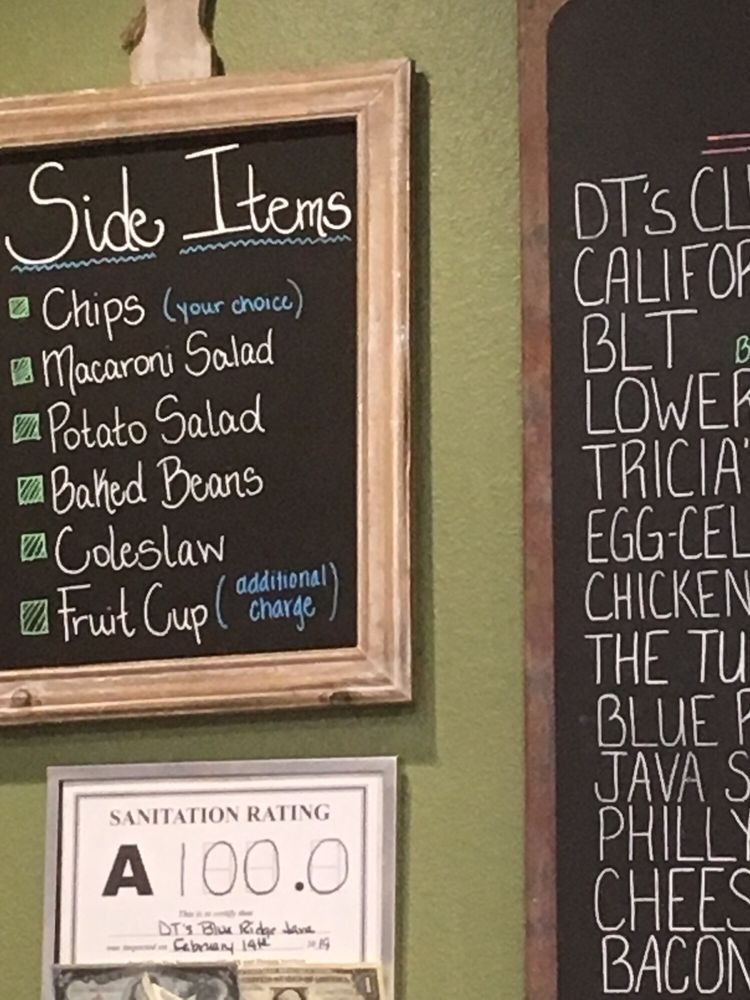 Side Items
Chips (your choice)
Macaroni Salad
Potato Salad
Baked Beans
Coleslaw
Fruit Cup (additional charge)
SANITATION RATING
A 100.0
This is to certify that
DT's Blue Ridge Java
was inspected on February 14th 2019
DT's CLU
CALIFOR
BLT B
LOWER
TRICIA'
EGG-CEL
CHICKEN
THE TU
BLUE R
JAVA S
PHILLY
CHEES
BACON